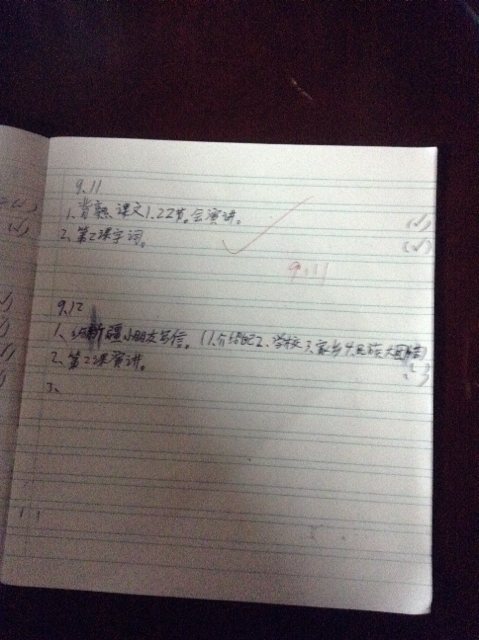 9.11
1、背熟课文1.2.2节。会演讲。 (✓)
2、第2课字词。 (✓)
9.11
9.12
1、给新疆小朋友写信。(1.介绍自己2、学校3、家乡4.民族大团结)
2、第2课演讲。
3、